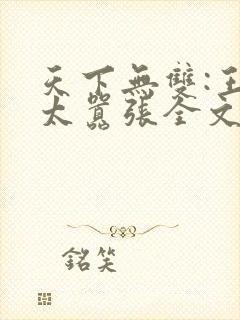 天下無雙:王
太囂張全文
銘笑